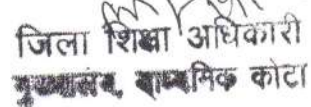 जिला शिक्षा अधिकारी
मुख्यालय, माध्यमिक कोटा